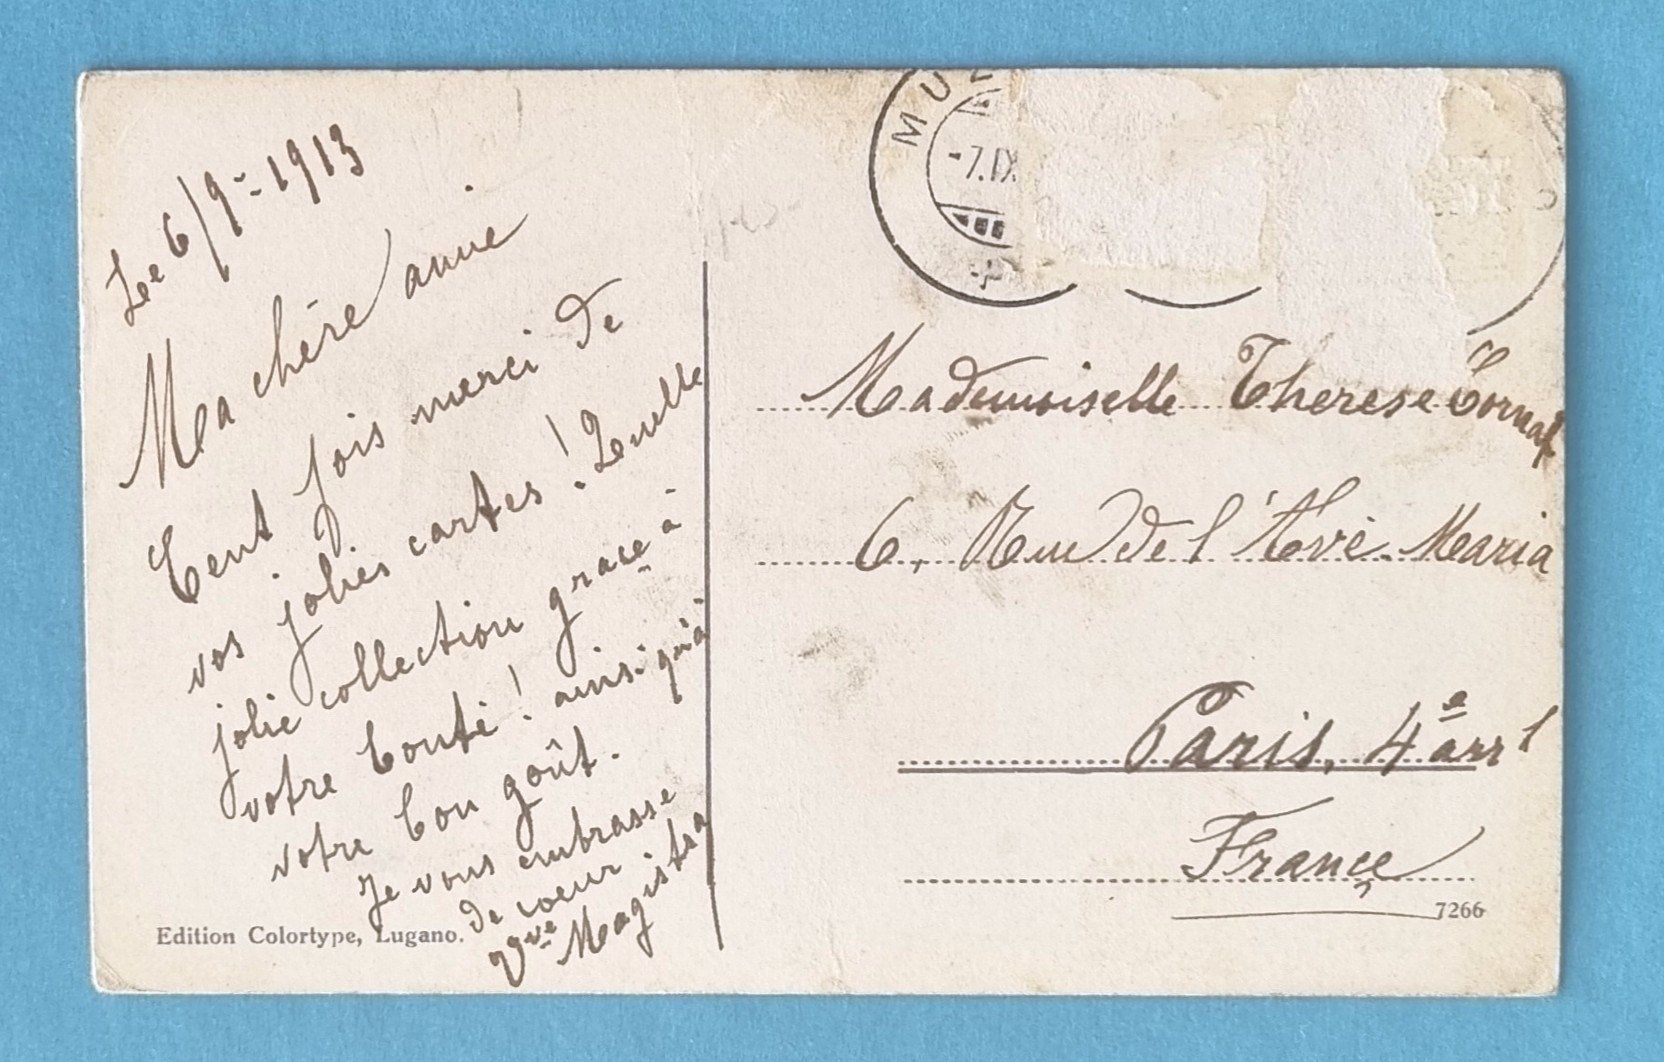 Le 6/9-1913
Ma chère amie
Cent fois merci de
vos jolies cartes! Quelle
jolie collection grace à
votre bonté! ainsi qu'à
votre bon goût.
Je vous embrasse
de coeur
Vve Magistra
Edition Colortype, Lugano.
MU
-7.IX
Mademoiselle Therese
6, Rue de l'Avé-Maria
Paris, 4e arrt
France
7266